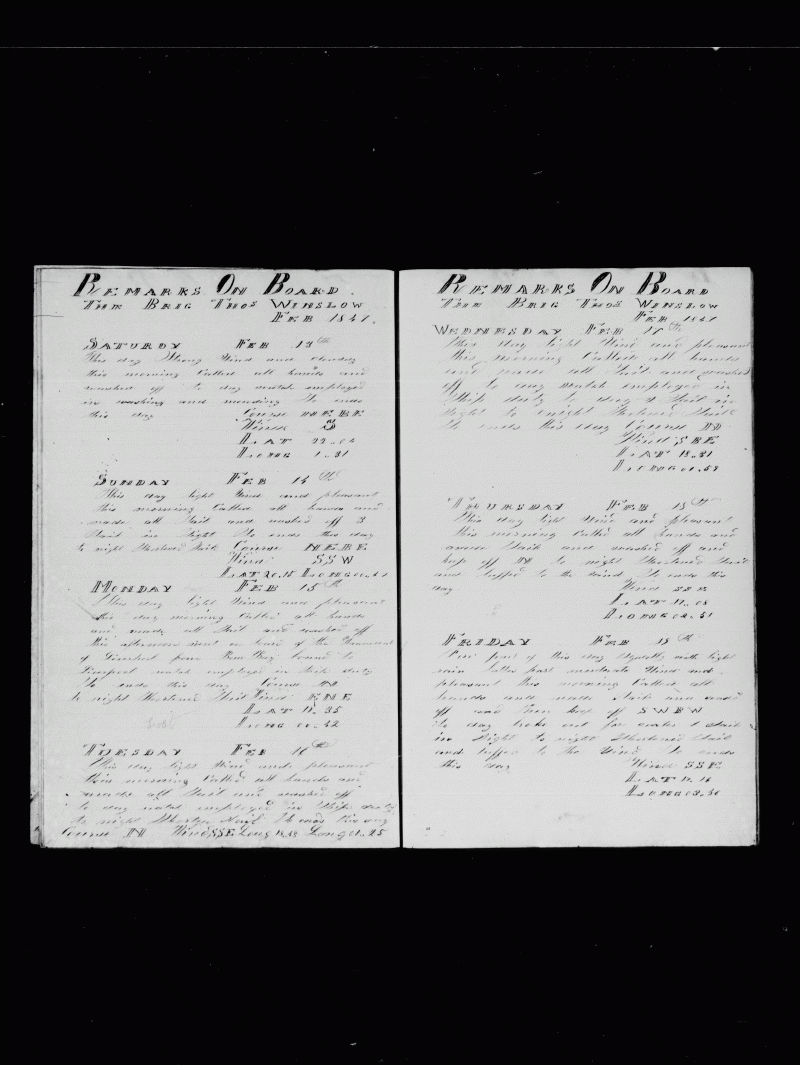 Remarks On Board
The Brig Thos Winslow
Feb 1847.
Saturdy Feb 13th
This day Strong Wind and cloudy
this morning Called all hands and
washed off to day watch employed
in washing and mending So ends
this day Course NE BE
Wind S
Lat 22..04
Long 1..31
Sunday Feb 14th
This day light Wind and pleasant
this morning Called all hands and
made all Sail and washed off 3
Sail in Sight So ends this day
to night Shortened Sail Course NEBE
Wind SSW
Lat 20.15 Long
Monday Feb 15th
This day light Wind and pleasant
this day morning Called all hands
and made all Sail and washed off
this afternoon went on board of the
of Liverpool from bound to
Liverpool watch employed in Ship duty
So ends this day Course N
to night Shortened Sail Wind ENE
Lat 35
Long 00..42
Tuesday Feb 16th
This day light Wind and pleasant
this morning Called all hands and
made all Sail and washed off
to day watch employed in Ship duty
to night Shorten Sail So ends this day
Course N Wind SSE Long Long 01..25
Remarks On Board
The Brig Thos Winslow
Feb 1847
Wednesday Feb 17th
This day light Wind and pleasant
This morning Called all hands
and made all Sail and washed
off to day watch employed in
Ship duty to day a Sail in
Sight to night Shortened Sail
So ends this day Course N
Wind SBE
Lat 18..31
Long 01..59
Thursday Feb 18th
This day light Wind and pleasant
this morning Called all hands and
made Sail and washed off and
kep off N to night Shortened Sail
and luffed to the wind So ends this
day Wind
Lat 17..08
Long 02..51
Friday Feb 19th
First part of this day Squally with light
rain latter part moderate Wind and
pleasant this morning Called all
hands and made Sail and
off and then kep off SWBW
to day broke out for water 1 Sail
in Sight to night Shortened Sail
and luffed to the Wind So ends
this day Wind SSE
Lat
Long